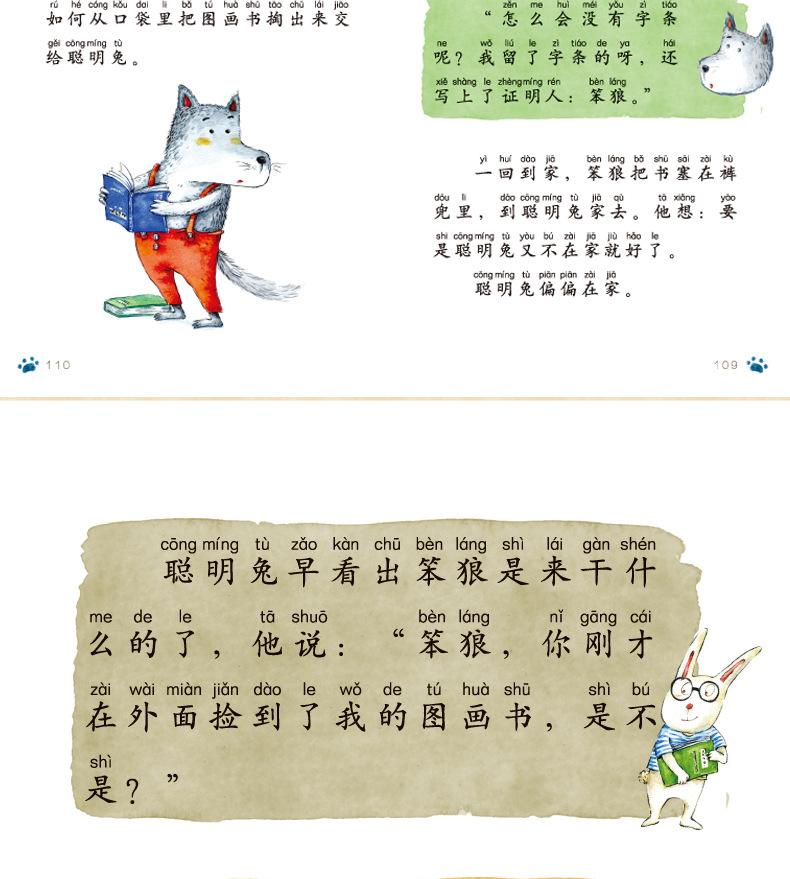 rú hé cóng kǒu dai li bǎ tú huà shū tāo chū lái jiāo
如何从口袋里把图画书掏出来交
gěi cōng míng tù
给聪明兔。
110
zěn me huì méi yǒu zì tiáo
“怎么会没有字条
ne wǒ liú le zì tiáo de ya hái
呢？我留了字条的呀，还
xiě shàng le zhèng míng rén bèn láng
写上了证明人：笨狼。”
yì huí dào jiā bèn láng bǎ shū sāi zài kù
一回到家，笨狼把书塞在裤
dōu li dào cōng míng tù jiā qù tā xiǎng yào
兜里，到聪明兔家去。他想：要
shi cōng míng tù yòu bú zài jiā jiù hǎo le
是聪明兔又不在家就好了。
cōng míng tù piān piān zài jiā
聪明兔偏偏在家。
109
cōng míng tù zǎo kàn chū bèn láng shì lái gàn shén
聪明兔早看出笨狼是来干什
me de le tā shuō bèn láng nǐ gāng cái
么的了，他说：“笨狼，你刚才
zài wài miàn jiǎn dào le wǒ de tú huà shū shì bú
在外面捡到了我的图画书，是不
shì
是？”